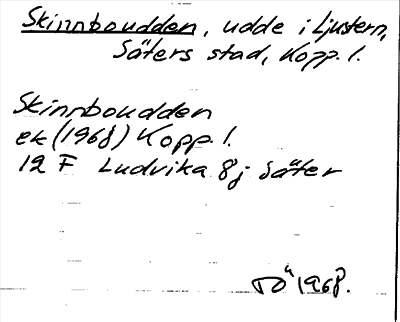 Skinnboudden, udde i Ljustern,
Säters stad, Kopp. l.
Skinnboudden
ek (1968) Kopp. l.
12 F Ludvika 8j Säter
TÖ 1968.